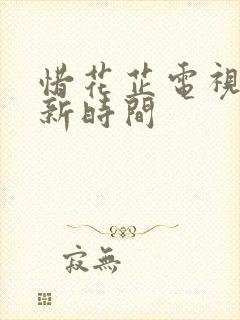 惜花芷電視
新時間
寂無